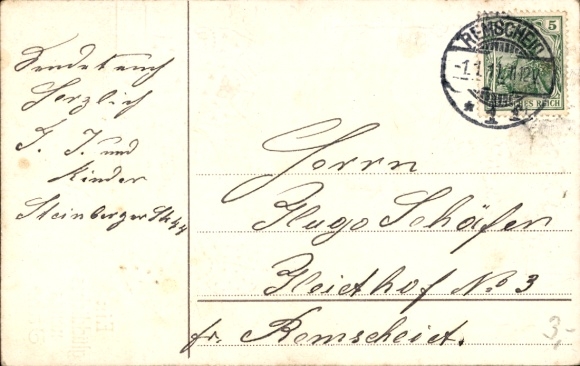 Sendet euch
Herzlich
F. F. und
Kinder
Steinberger Str 44
REMSCHEID
* 1 f
5
DEUTSCHES REICH
Herrn
Hugo Schäfer
Heidhof No 3
fr. Remscheid.
3,-